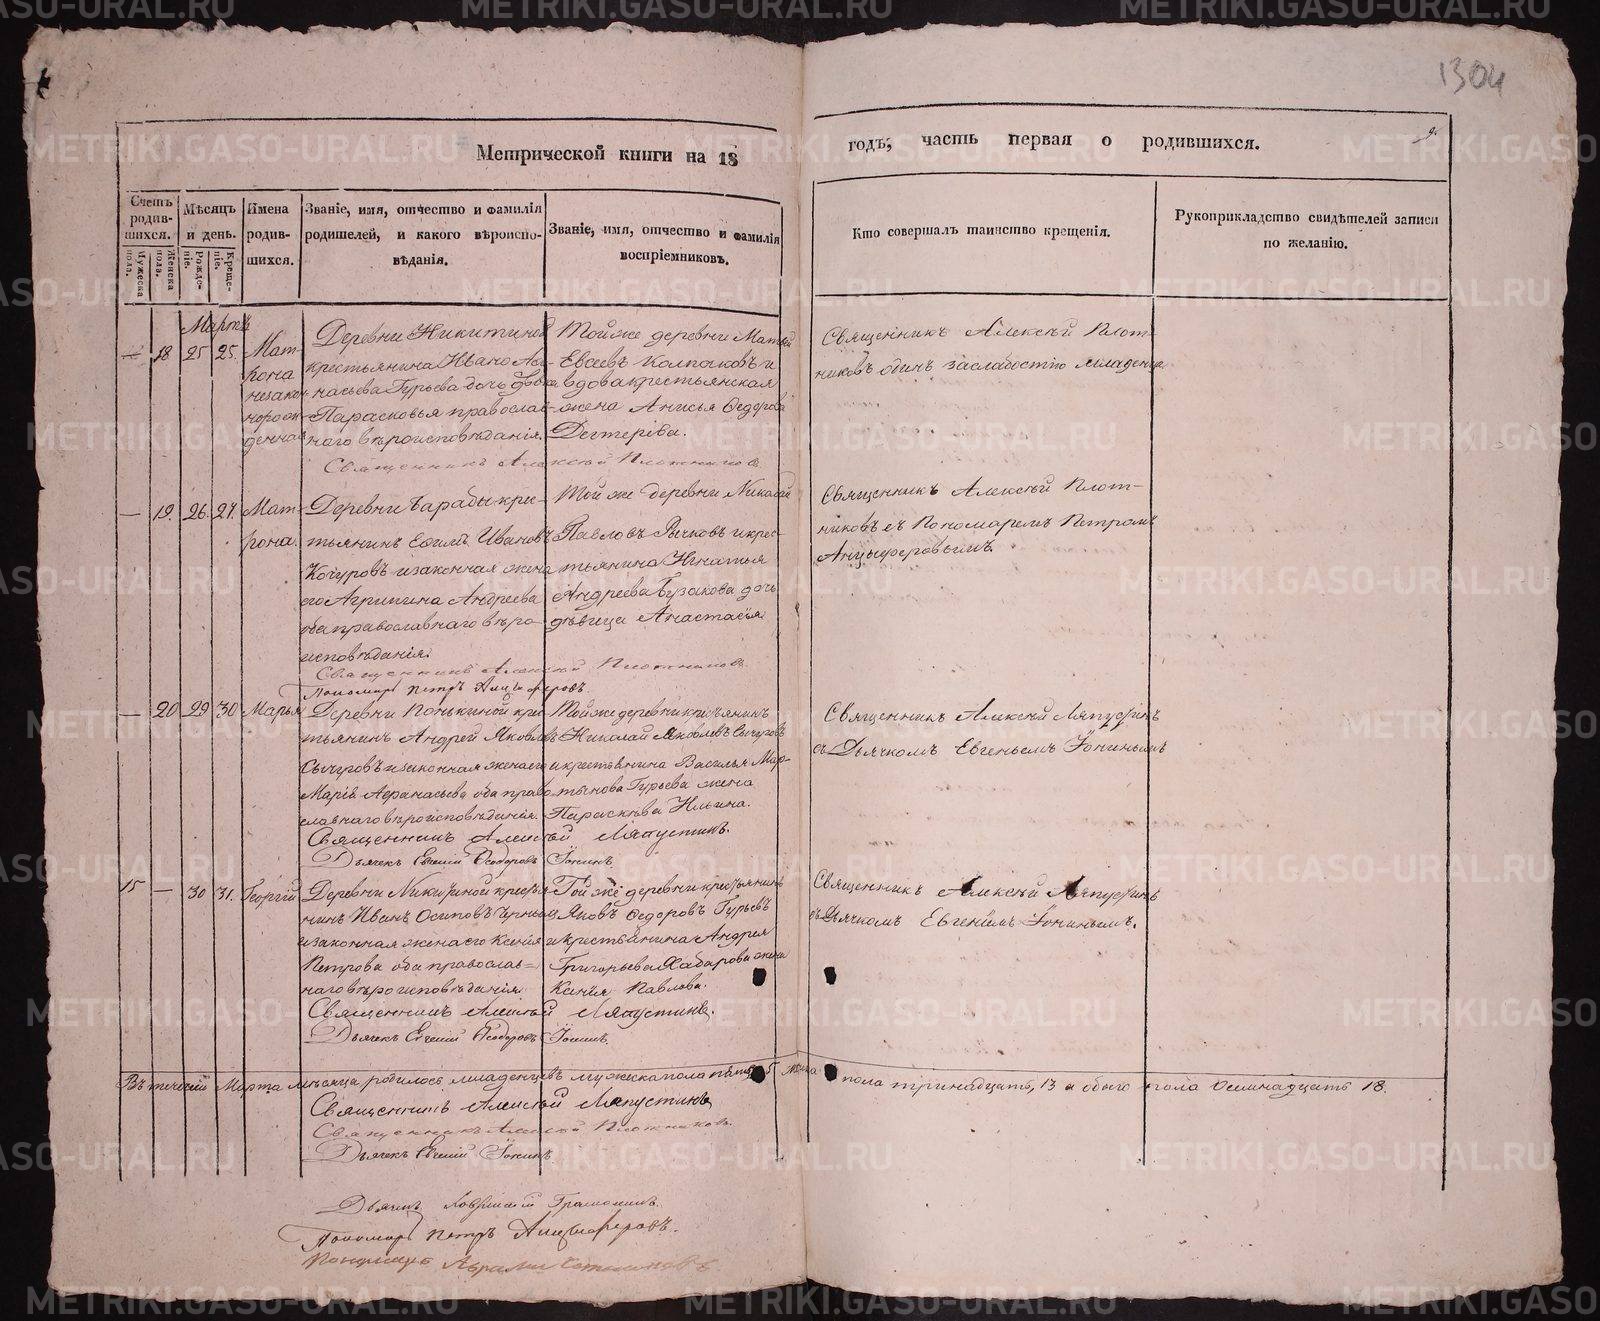 1304
Метрической книги на 18
годъ, часть первая о родившихся.
9.
Счетъ родившихся.
Мужеска пола.
Женска пола.
Мѣсяцъ и день.
Рожденіе.
Крещеніе.
Имена родившихся.
Званіе, имя, отчество и фамилія родителей, и какого вѣроисповѣданія.
Званіе, имя, отчество и фамилія воспріемниковъ.
Кто совершалъ таинство крещенія.
Рукоприкладство свидѣтелей записи по желанію.
Марта
— 18 25 25.
Матрона незаконнорожденная
Деревни Никитиной
крестьянина Ивана Афанасьева Гурьева дочь
Парасковья православнаго вѣроисповѣданія.
Той же деревни
Евсевъ Колпаковъ и
вдова крестьянская
жена Анисья Ѳедорова
Священникъ Алексѣй Плотниковъ одинъ за слабостію младенца
Священникъ Алексѣй Плотниковъ
— 19. 26. 27.
Матрона.
Деревни крестьянинъ Ефимъ Ивановъ
Кочуровъ и законная жена
его Агрипина Андреева
оба православнаго вѣроисповѣданія.
Той же деревни Николай
Павловъ Бычковъ и крестьянина Игнатья
Андреева Бузакова дочь
дѣвица Анастасія
Священникъ Алексѣй Плотниковъ съ Пономаремъ Петромъ
Анцыферовымъ.
Священникъ Алексѣй Плотниковъ
Пономарь Петръ Анцыферовъ.
— 20 29 30
Марья
Деревни Понькиной крестьянинъ Андрей Яковлевъ
Сычуговъ и законная жена его
Марія Афанасьева оба православнаго вѣроисповѣданія.
Той же деревни крестьянинъ
Николай Яковлевъ Сычуговъ
и крестьянина Василья Мартынова Гурьева жена
Параскева Ильина.
Священникъ Алексѣй Ляпустинъ
съ Дьячкомъ Евгеньемъ Іонинымъ
Священникъ Алексѣй Ляпустинъ.
Дьячекъ Евгеній Ѳеодоровъ Іонинъ
15 — 30 31.
Георгій
Деревни Никитиной крестьянинъ Иванъ Осиповъ
и законная жена его Ксенія
Петрова оба православнаго вѣроисповѣданія
Той же деревни крестьянинъ
Яковъ Ѳедоровъ Гурьевъ
и крестьянина Андрея
Григорьева Хабарова жена
Ксенія Павлова.
Священникъ Алексѣй Ляпустинъ
съ Дьячкомъ Евгеніемъ Іонинымъ.
Священникъ Алексѣй Ляпустинъ.
Дьячекъ Евгеній Ѳеодоровъ Іонинъ.
Въ теченіи Марта мѣсяца родилось младенцевъ мужеска пола пять 5 пола тринадцать, 13 а обоего пола осемнадцать 18.
Священникъ Алексѣй Ляпустинъ
Священникъ Алексѣй Плотниковъ.
Дьячекъ Евгеній Іонинъ.
Дьячекъ
Пономарь Петръ Анцыферовъ.
METRIKI.GASO-URAL.RU